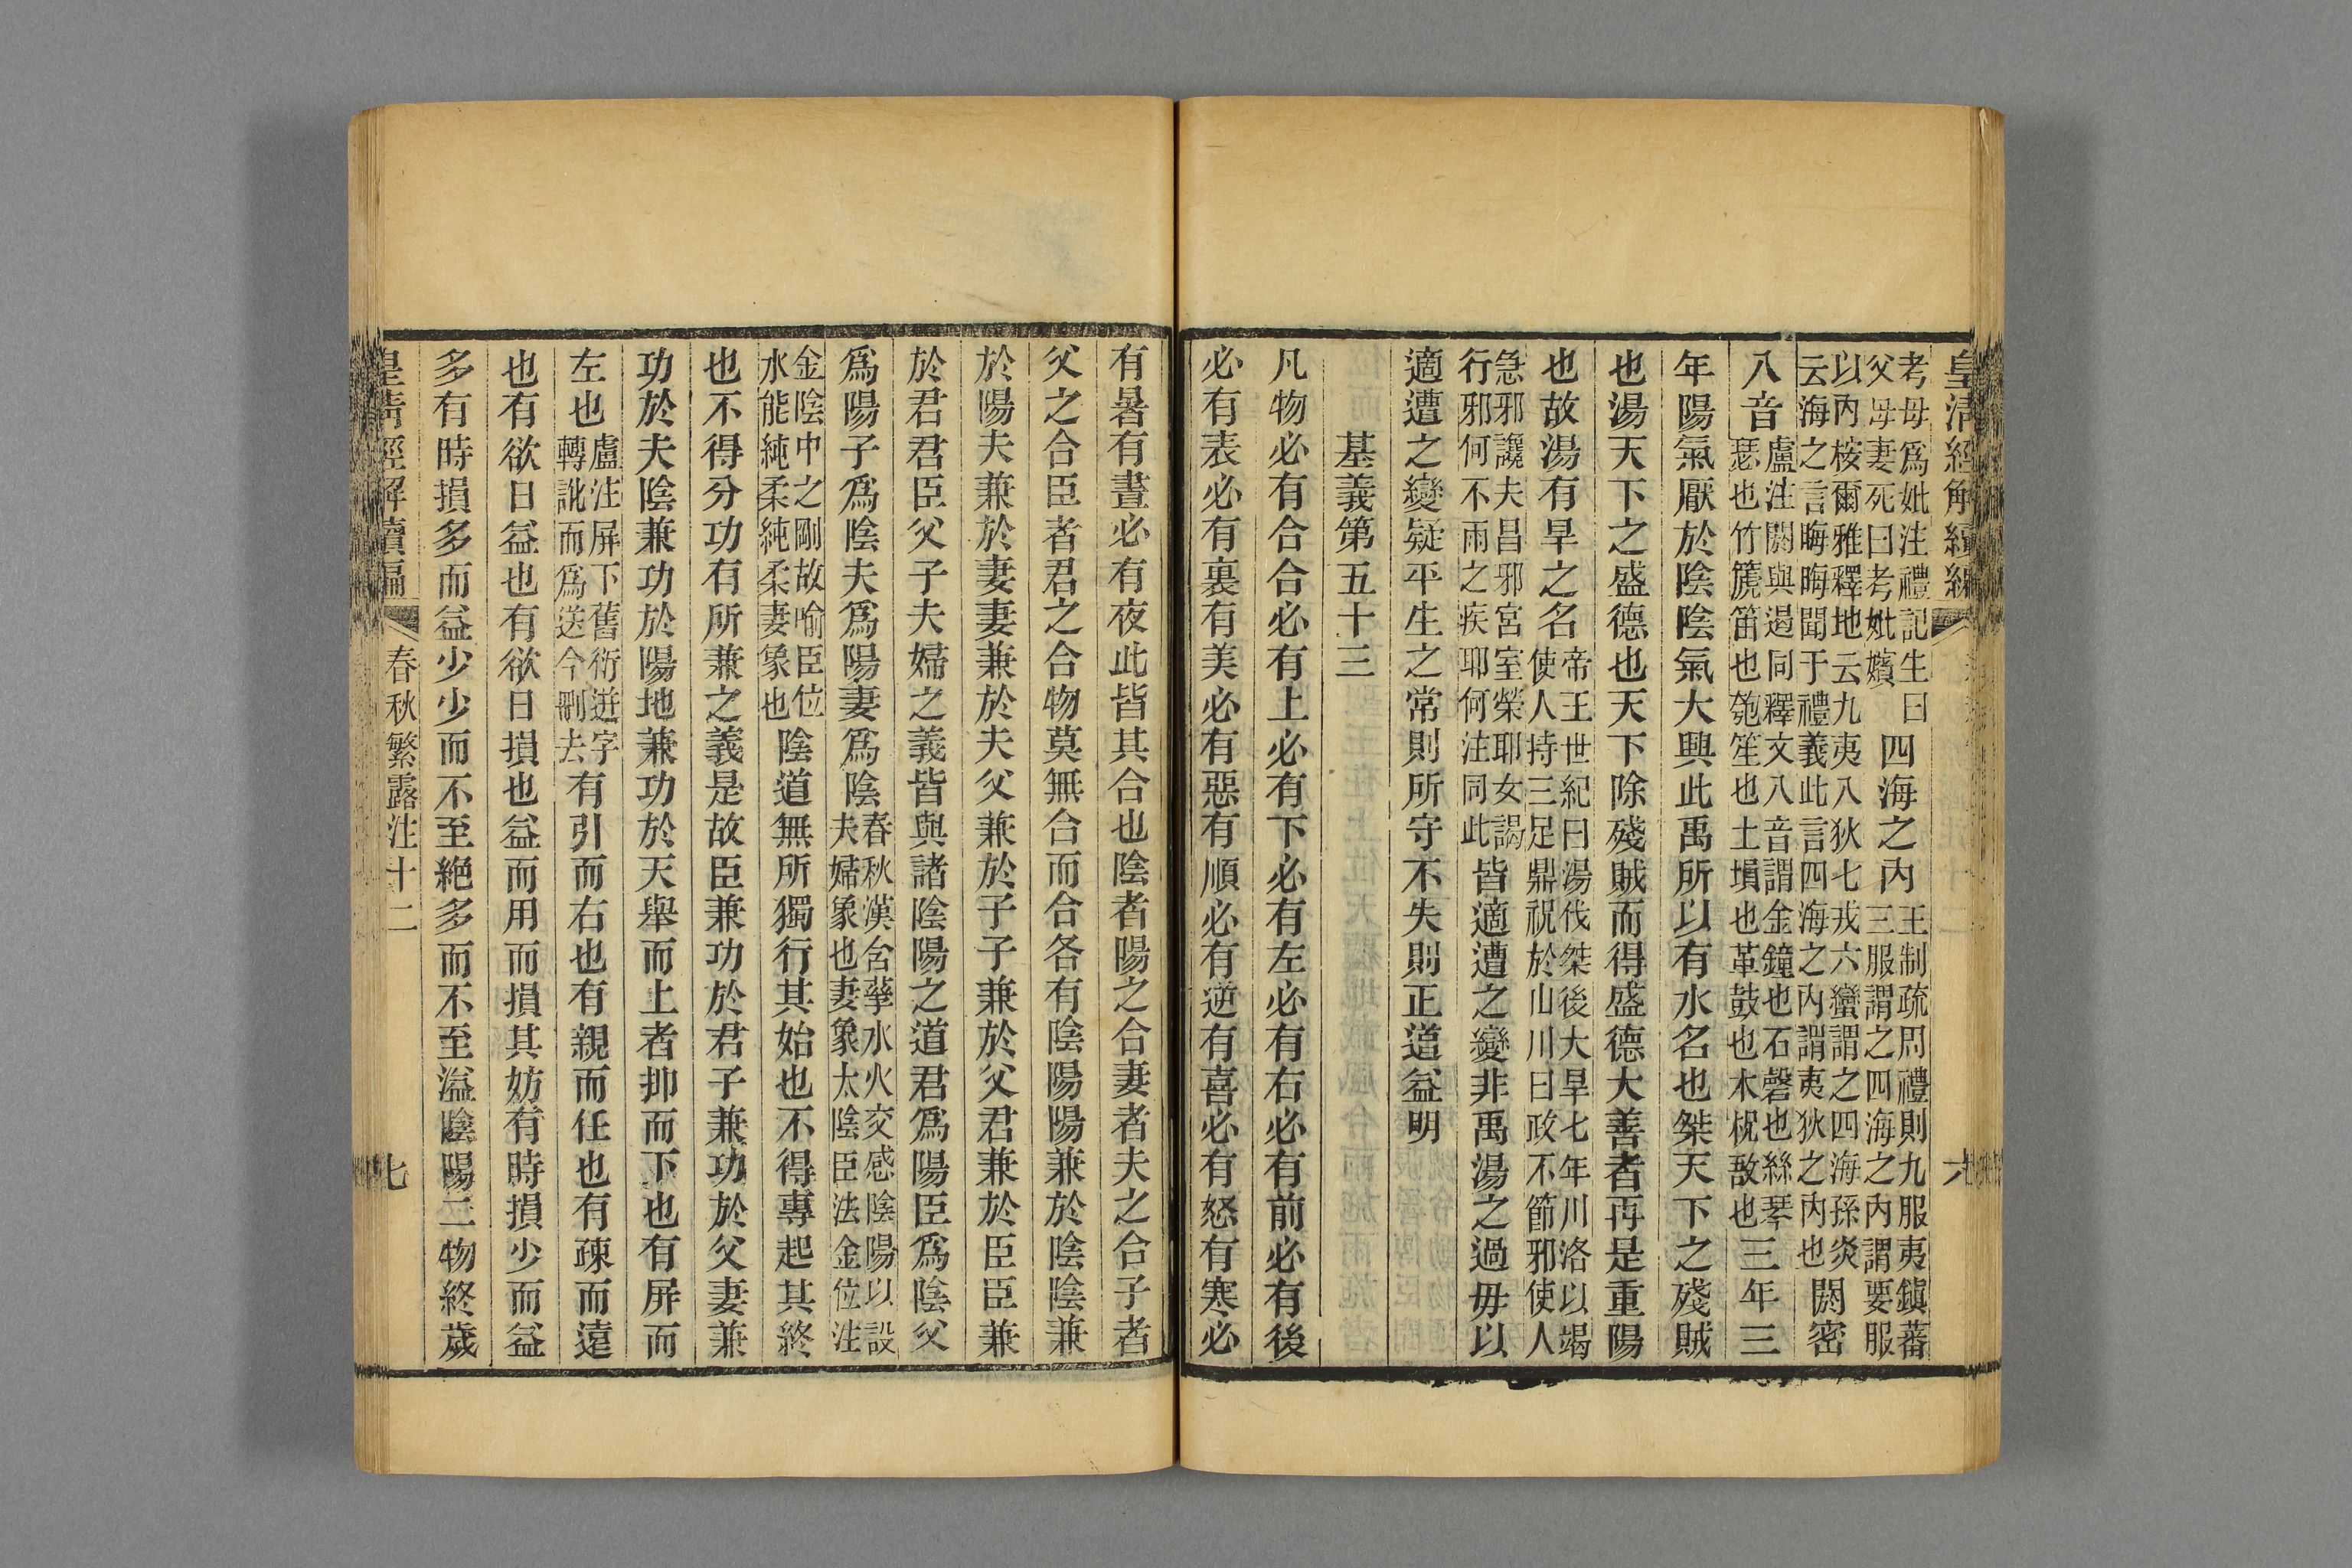 皇清經解續編
六
考母爲妣注禮記生曰父母妻死曰考妣嬪四海之內王制疏周禮則九服夷鎭蕃三服謂之四海之內謂要服
以內桉爾雅釋地云九夷八狄七戎六蠻謂之四海孫炎云海之言晦晦聞于禮義此言四海之內謂夷狄之內也閼密
八音盧注閼與遏同釋文八音謂金鐘也石磬也絲琴瑟也竹箎笛也匏笙也土塤也革鼓也木柷敔也三年三
年陽氣厭於陰陰氣大興此禹所以有水名也桀天下之殘賊
也湯天下之盛德也天下除殘賊而得盛德大善者再是重陽
也故湯有旱之名帝王世紀曰湯伐桀後大旱七年川洛以竭使人持三足鼎祝於山川曰政不節邪使人
急邪讒夫昌邪宮室榮耶女謁行邪何不雨之疾耶何注同此皆適遭之變非禹湯之過毋以
適遭之變疑平生之常則所守不失則正道益明
基義第五十三
凡物必有合合必有上必有下必有左必有右必有前必有後
必有表必有裏有美必有惡有順必有逆有喜必有怒有寒必
有暑有晝必有夜此皆其合也陰者陽之合妻者夫之合子者
父之合臣者君之合物莫無合而合各有陰陽陽兼於陰陰兼
於陽夫兼於妻妻兼於夫父兼於子子兼於父君兼於臣臣兼
於君君臣父子夫婦之義皆與諸陰陽之道君爲陽臣爲陰父
爲陽子爲陰夫爲陽妻爲陰春秋漢含孳水火交感陰陽以設夫婦象也妻象太陰臣法金位注
金陰中之剛故喻臣位水能純柔純柔妻象也陰道無所獨行其始也不得專起其終
也不得分功有所兼之義是故臣兼功於君子兼功於父妻兼
功於夫陰兼功於陽地兼功於天舉而上者抑而下也有屏而
左也盧注屏下舊衍迸字轉訛而爲送今刪去有引而右也有親而任也有疎而遠
也有欲日益也有欲日損也益而用而損其妨有時損少而益
多有時損多而益少少而不至絶多而不至溢陰陽二物終歲
皇清經解續編
春秋繁露注十二
七